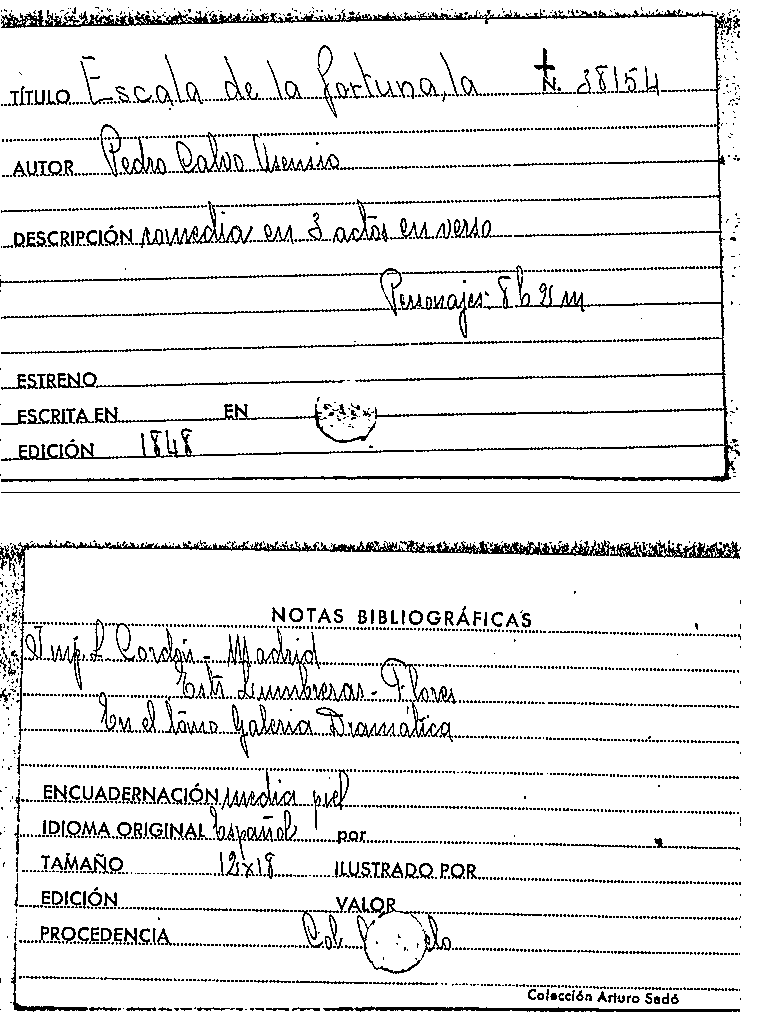 TÍTULO Escala de la fortuna, la N. 38154
AUTOR Pedro Calvo Asensio
DESCRIPCIÓN comedia en 3 actos en verso
Personajes: 8 h 2 m
ESTRENO
ESCRITA EN EN
EDICIÓN 1848
NOTAS BIBLIOGRÁFICAS
Imp. L Cordón - Madrid
Lumbreras - Flores
En el tomo Galeria Dramática
ENCUADERNACIÓN media piel
IDIOMA ORIGINAL Español por
TAMAÑO 12x18 ILUSTRADO POR
EDICIÓN VALOR
PROCEDENCIA Col.
Colección Arturo Sedó